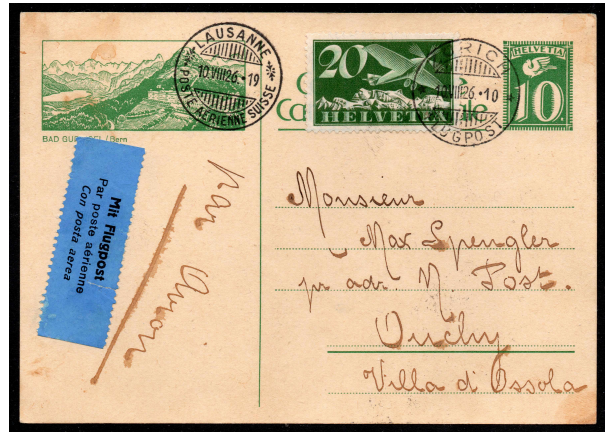 LAUSANNE
10.VIII.26.-19
POSTE AERIENNE SUISSE
20
HELVETIA
10.VIII.26.-10
FLUGPOST
HELVETIA
10
BAD GURNIGEL / Bern
Mit Flugpost
Par poste aérienne
Con posta aerea
par Avion
Monsieur
Max Spengler
pr adr. M. Post.
Ouchy
Villa d'Ossola